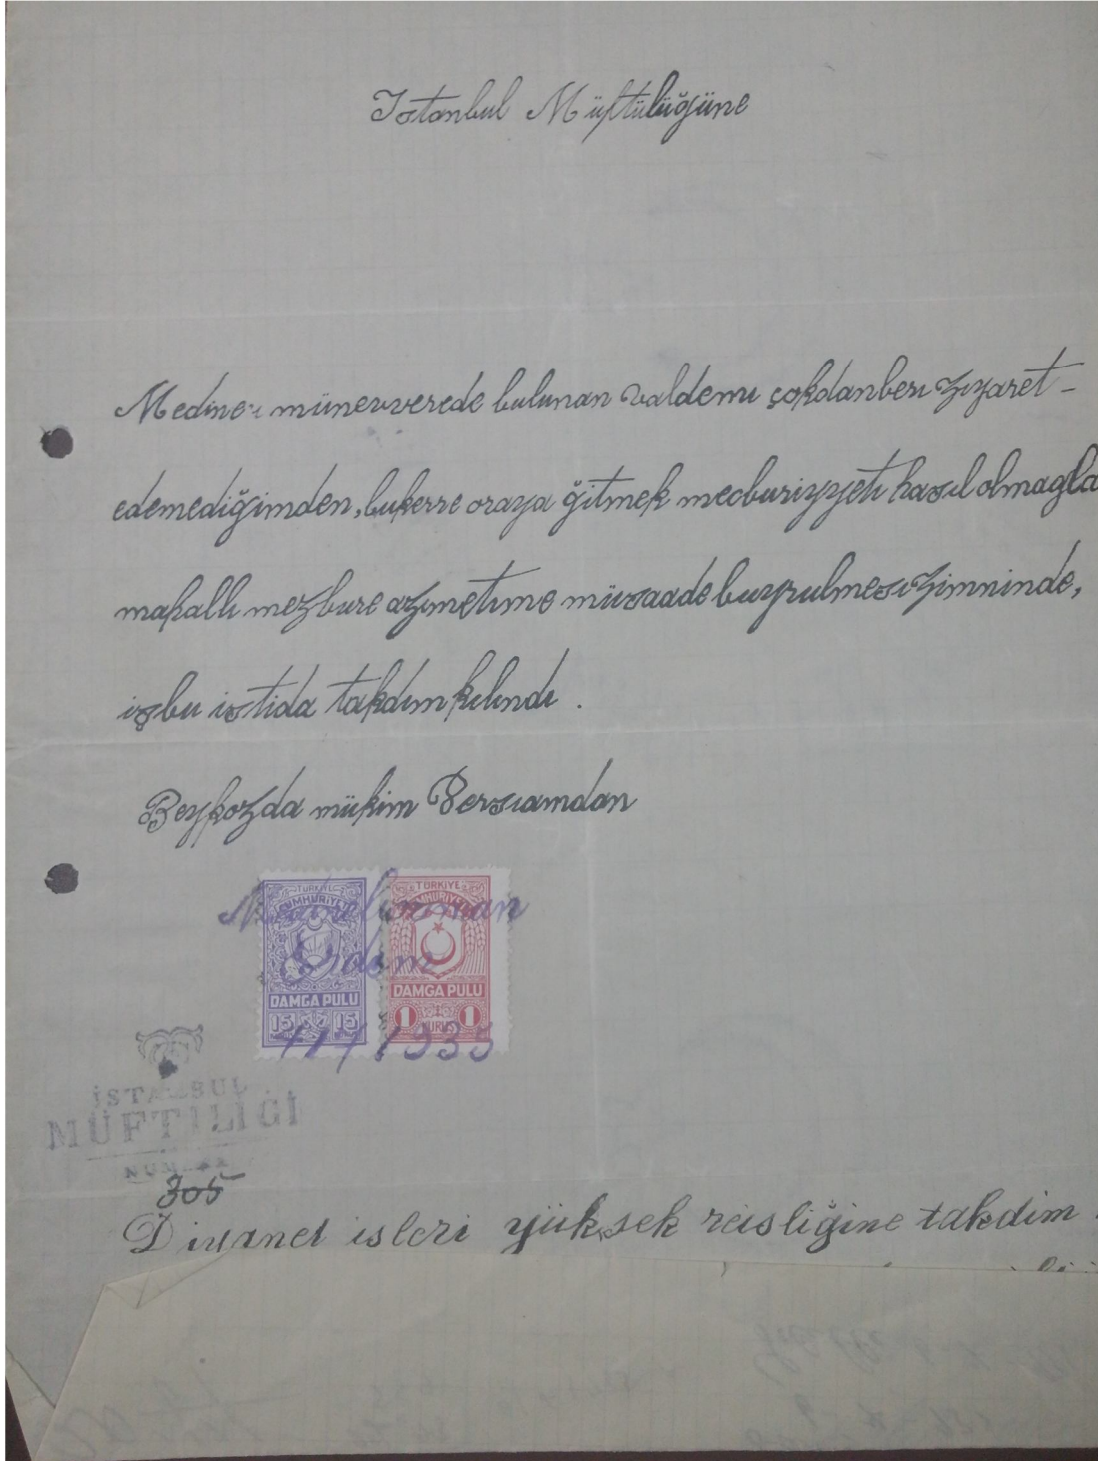 Istanbul Müftülüğüne
Medinei münevverede bulunan valdemi çokdanberi ziyaret-
edemediğimden, bukerre oraya ğitmek mecburiyyeti hasıl olmagla
mahalli mezbure azimetime müsaade buyrulmesi zimninde,
işbu istida takdim kılındı.
Beykozda mükim Dersiamdan
TÜRKİYE TÜRKİYE
CUMHURİYETİ CUMHURİYETİ
Erdem
DAMGA PULU DAMGA PULU
15 15 1 KURUŞ 1
1935
İSTANBUL
MÜFTİLİĞİ
NUMARA
305
Diyanet isleri yüksek reisliğine takdim